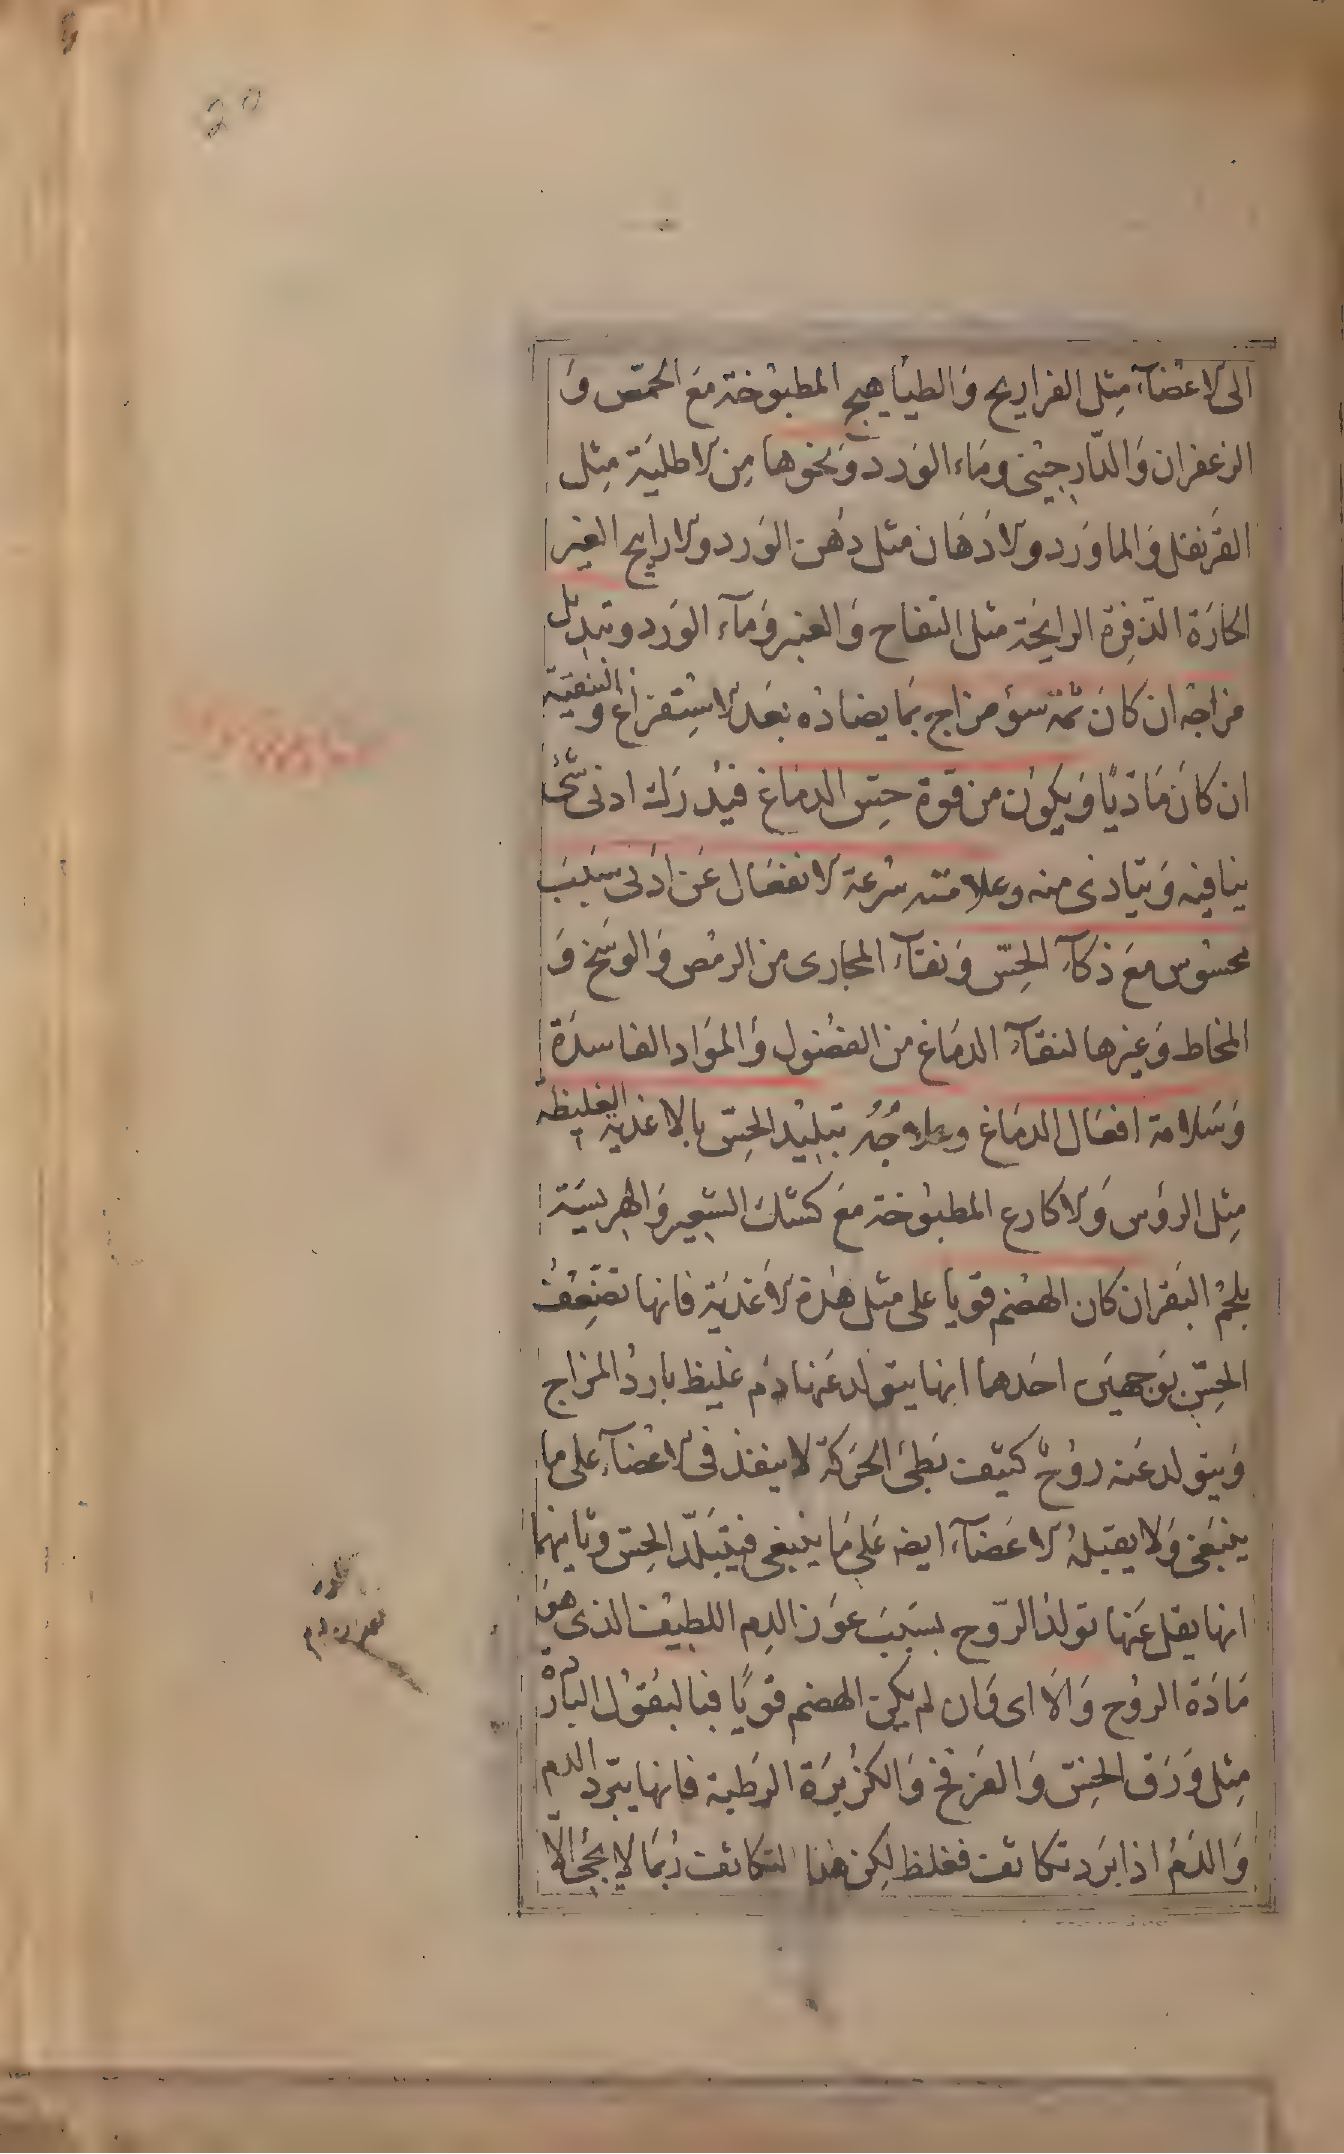 20
الى الاعضآء مِثل الفراريج وَالطيَاهيج المطبوُخة مَعَ الحمّص وَ
الزعفران وَالدّارجيْنى ومَاء الوَرد وَنحوها مِن الاطليَة مِثل
القرَنفل وَالماوَرد والادَهَان مثل دُهن الوَرد والارايح الغير
الحارَة الذّفِرة الرايحَة مثل التفاح وَالعنبر وَمآء الورَد وتبديل
مزاجه ان كانَ ثمّة سؤ مزاج بمَا يضادُه بَعدَ الاسِتفراغ والتنقيَة
ان كانَ مَادّيًا وَيكوُن من قوّة حِسّ الدمَاغ فيُدرَك ادنى شئ
ينافيه وَيتاذى منه وعلامَته سُرعة الانفعَال عَن ادَنى سَبَب
محسوُس مَع ذكآء الحِسّ وَنقآء المجارى من الرمَص وَالوسَخ وَ
المخاط وَغيرها لنقآء الدمَاغ من الفضُول وَالموَاد الفاسدَة
وَسَلامة افعَال الدمَاغ وعلاجُه تبليُد الحِسّ بالاغذيَة الغليظة
مِثل الرؤس وَالاكارع المطبوُخة مَع كشك الشعير وَالهريسَة
بلحم البَقر ان كان الهضم قويا على مثل هٰذه الاغَذيَة فانها تضُعِف
الحِسّ بوَجهيَن احَدهما انها يتولد عَنها دَم غليظ باردُ المزاج
وَيتولد عَنه روُحٌ كثيف بَطئ الحَركة لا ينفذ فى الاعضآء على ما
ينبَغى وَلا يقبلهُ الاعَضآء ايضه عَلى مَا ينبغى فيتبَلّد الحِسّ وثانيهما
انها يقل عَنها تولدُ الرّوح بسَبَبَ عوَز الدِم اللطيف الذى هوَ
مَادَة الروُح وَالّا اى وَان لم يكن الهضم قويًا فبالبقوُل البارَدة
مِثل وَرَق الخسّ وَالفرَفخ وَالكزُبرَة الرَطبة فانها يبّرد الدم
وَالدَمُ اذا برَد تكاثف فغلظ لكِن هٰذا التكاثف رُبمَا لا يجئ الّا